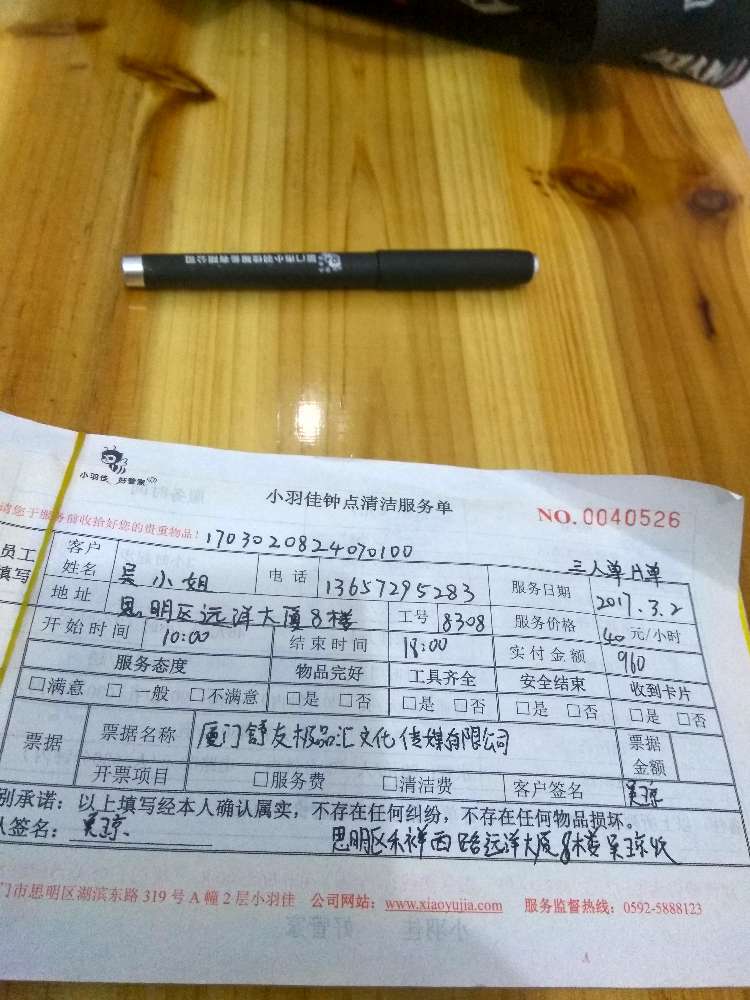 厦门市小羽佳服务有限公司
小羽佳 好管家
小羽佳钟点清洁服务单
NO. 0040526
请您于服务前收拾好您的贵重物品!
1703020824070100
三人单片单
员工填写
客户姓名 吴小姐 电话 13657295283 服务日期 2017.3.2
地址 思明区远洋大厦8楼 工号 8308 服务价格 40 元/小时
开始时间 10:00 结束时间 18:00 实付金额 960
服务态度 物品完好 工具齐全 安全结束 收到卡片
□满意 □一般 □不满意 □是 □否 □是 □否 □是 □否 □是 □否
票据 票据名称 厦门舒友极品汇文化传媒有限公司 票据金额
开票项目 □服务费 □清洁费 客户签名 吴琼
别承诺：以上填写经本人确认属实，不存在任何纠纷，不存在任何物品损坏。
人签名： 吴琼 思明区禾祥西路远洋大厦8楼吴琼收
门市思明区湖滨东路319号A幢2层小羽佳 公司网站：www.xiaoyujia.com 服务监督热线：0592-5888123